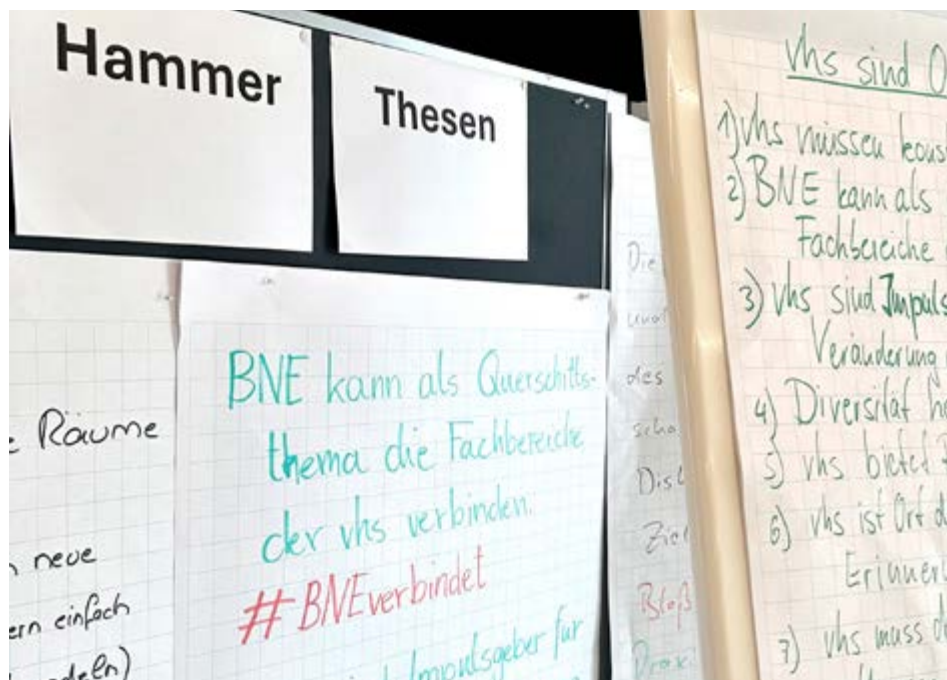 Hammer
Thesen
Räume
neue
einfach
BNE kann als Querschitts-
thema die Fachbereiche
der vhs verbinden.
#BNEverbindet
Impulsgeber für
Die
und
des
Ziel
Bloß
vhs sind O
1) vhs müssen kons
2) BNE kann als
Fachbereiche
3) vhs sind Impuls
Veränderung
4) Diversität
5) vhs bietet
6) vhs ist Ort d
Erinner
7) vhs muss di